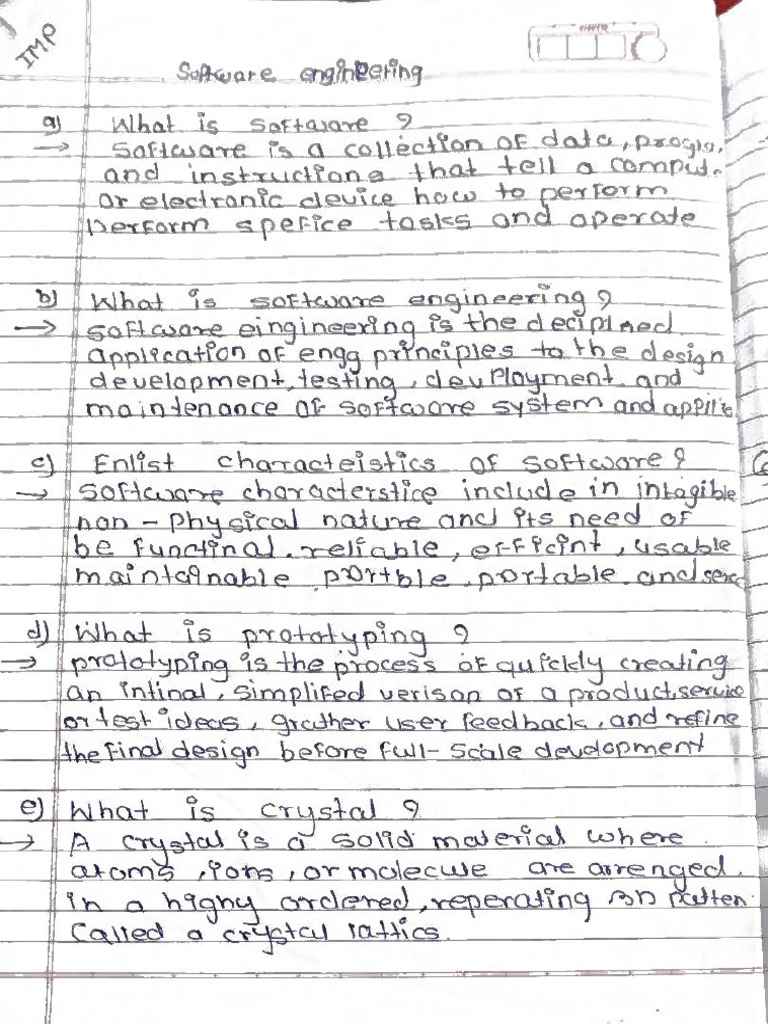 IMP
Software engineering
a) What is software ?
→ software is a collection of data, progra,
and instructions that tell a comput.
or electronic device how to perform
perform spefice tasks and operate
b) What is software engineering ?
→ software eingineering is the deciplned
application of engg principles to the design
development, testing, devployment and
maintenance of software system and applic
c) Enlist characteistics of software ?
→ software characterstice include in intagible
non - physical nature and its need of
be functinal. reliable, efficint, usable
maintainable portble, portable. and sec
d) What is prototyping ?
→ prototyping is the process of quickly creating
an intinal, simplifed verison of a product, service
or test ideas, grather user feedback, and refine
the final design before full-scale development
e) What is crystal ?
→ A crystal is a solid material where
atoms, ions, or molecule are arrenged
in a highy ordered, reperating 3D patten
Called a crystal lattics.